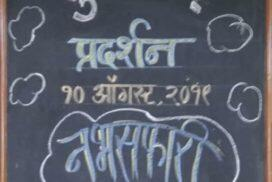 प्रदर्शन
१० ऑगस्ट, २०१९
नभसफारी